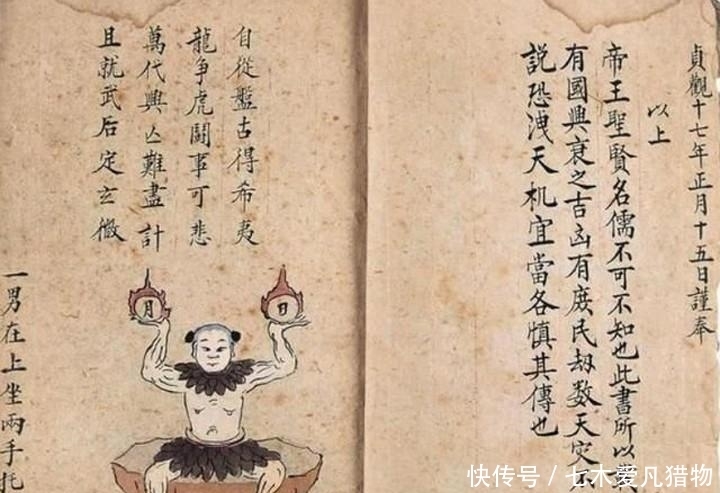 貞觀十七年正月十五日謹奉
以上
帝王聖賢名儒不可不知也此書所以
有國興衰之吉凶有庶民劫数天灾
説恐洩天机宜當各慎其傳也
自從盤古得希夷
龍争虎鬪事可悲
萬代興亾難盡計
且就武后定玄微
日
月
一男在上坐兩手托
快传号/七木爱凡猎物